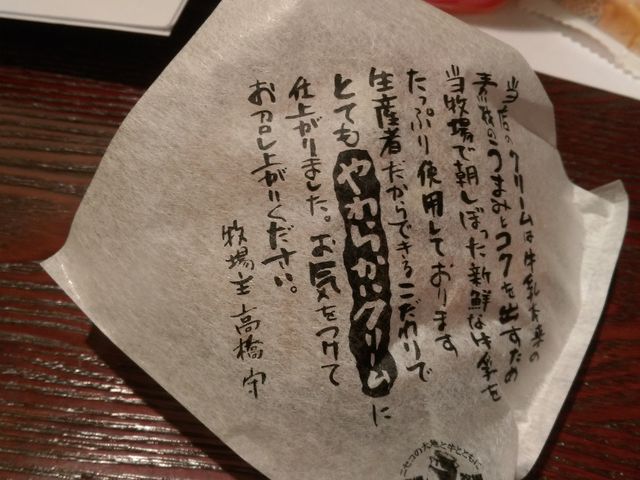 当店のクリームは牛乳本来の
素材のうまみとコクを出すため
当牧場で朝しぼった新鮮な牛乳を
たっぷり使用しております
生産者だからできるこだわりで
とてもやわらかいクリームに
仕上がりました。お気をつけて
お召し上がりください。
牧場主 高橋 守
ニセコの大地と牛とともに